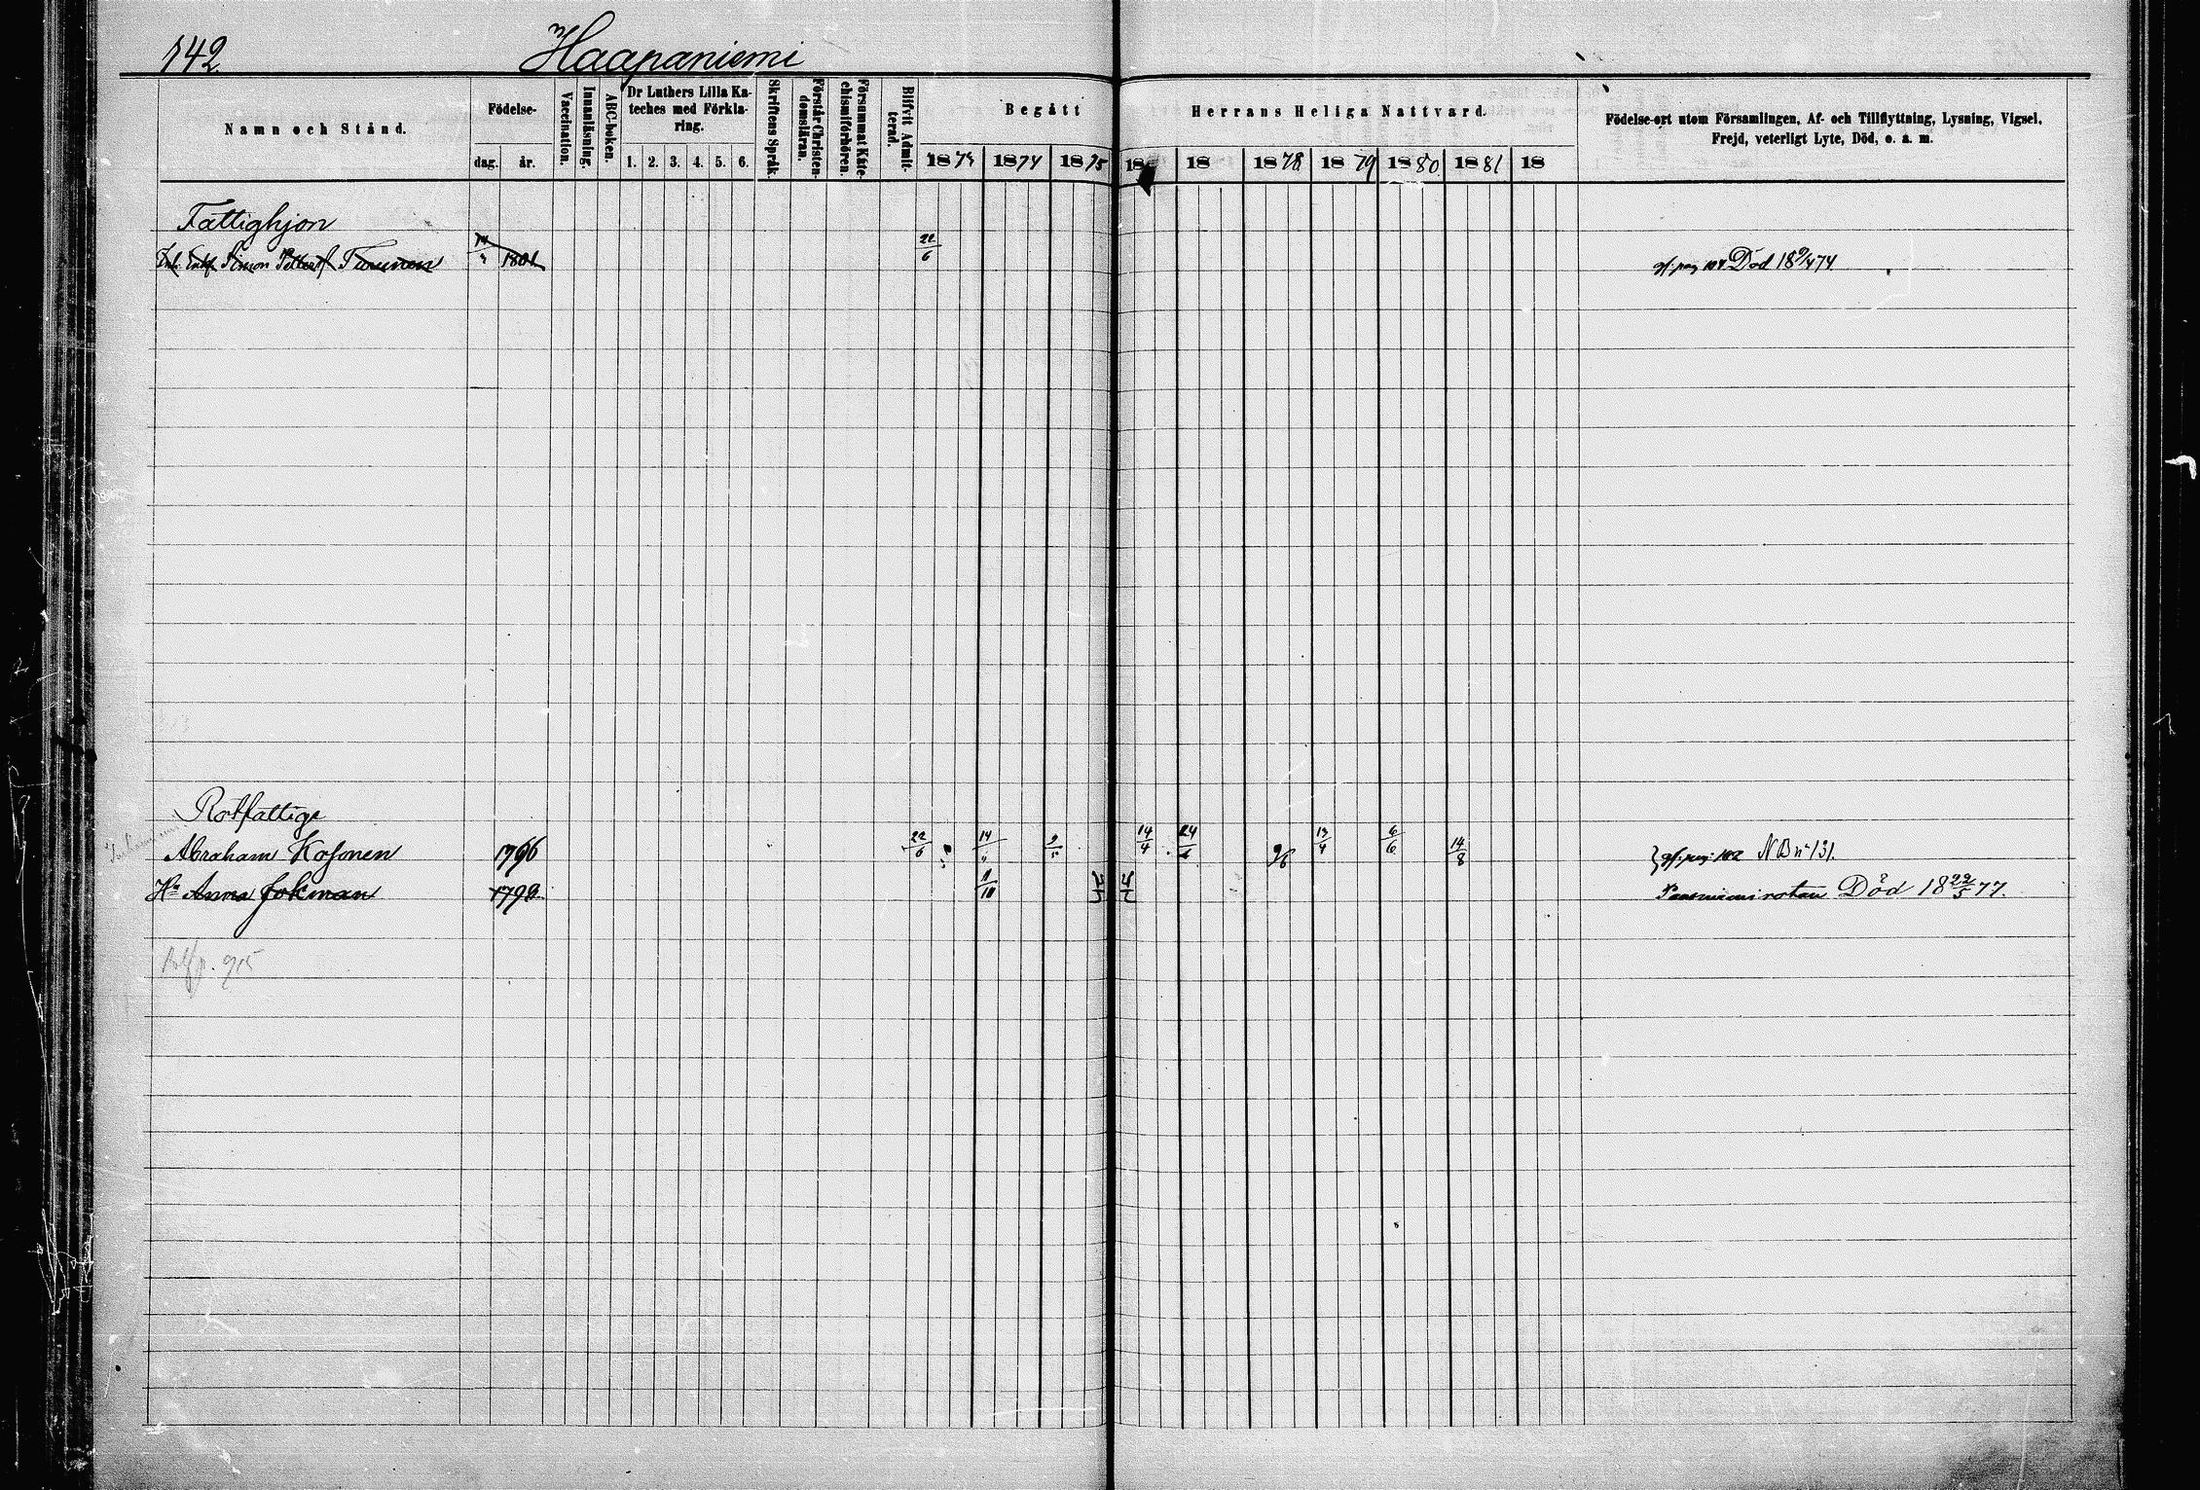 142.
Haapaniemi
Namn och Stånd.
Födelse-
dag. år.
Vaccination.
Innanläsning.
ABC-boken.
Dr Luthers Lilla Ka-
teches med Förkla-
ring.
1. 2. 3. 4. 5. 6.
Skriftens Språk.
Förstår Christen-
domsläran.
Försummat Kate-
chismiförhören.
Blifvit Admit-
terad.
Begått Herrans Heliga Nattvard.
1873 1874 1875 18 18 1878 1879 1880 1881 18
Födelse-ort utom Församlingen, Af- och Tillflyttning, Lysning, Vigsel,
Frejd, veterligt Lyte, Död, o. a. m.
Fattighjon
Simon Turunen 1801 22/6 Död 18 9/4 74
Rotfattige
Abraham Kosonen 1796 22/6 14 14/4 24 9/6 13/4 6/6 14/8 NB n 131.
Hu Anna Jokman 1799 11/10 rotan Död 18 22/5 77.
p. 915